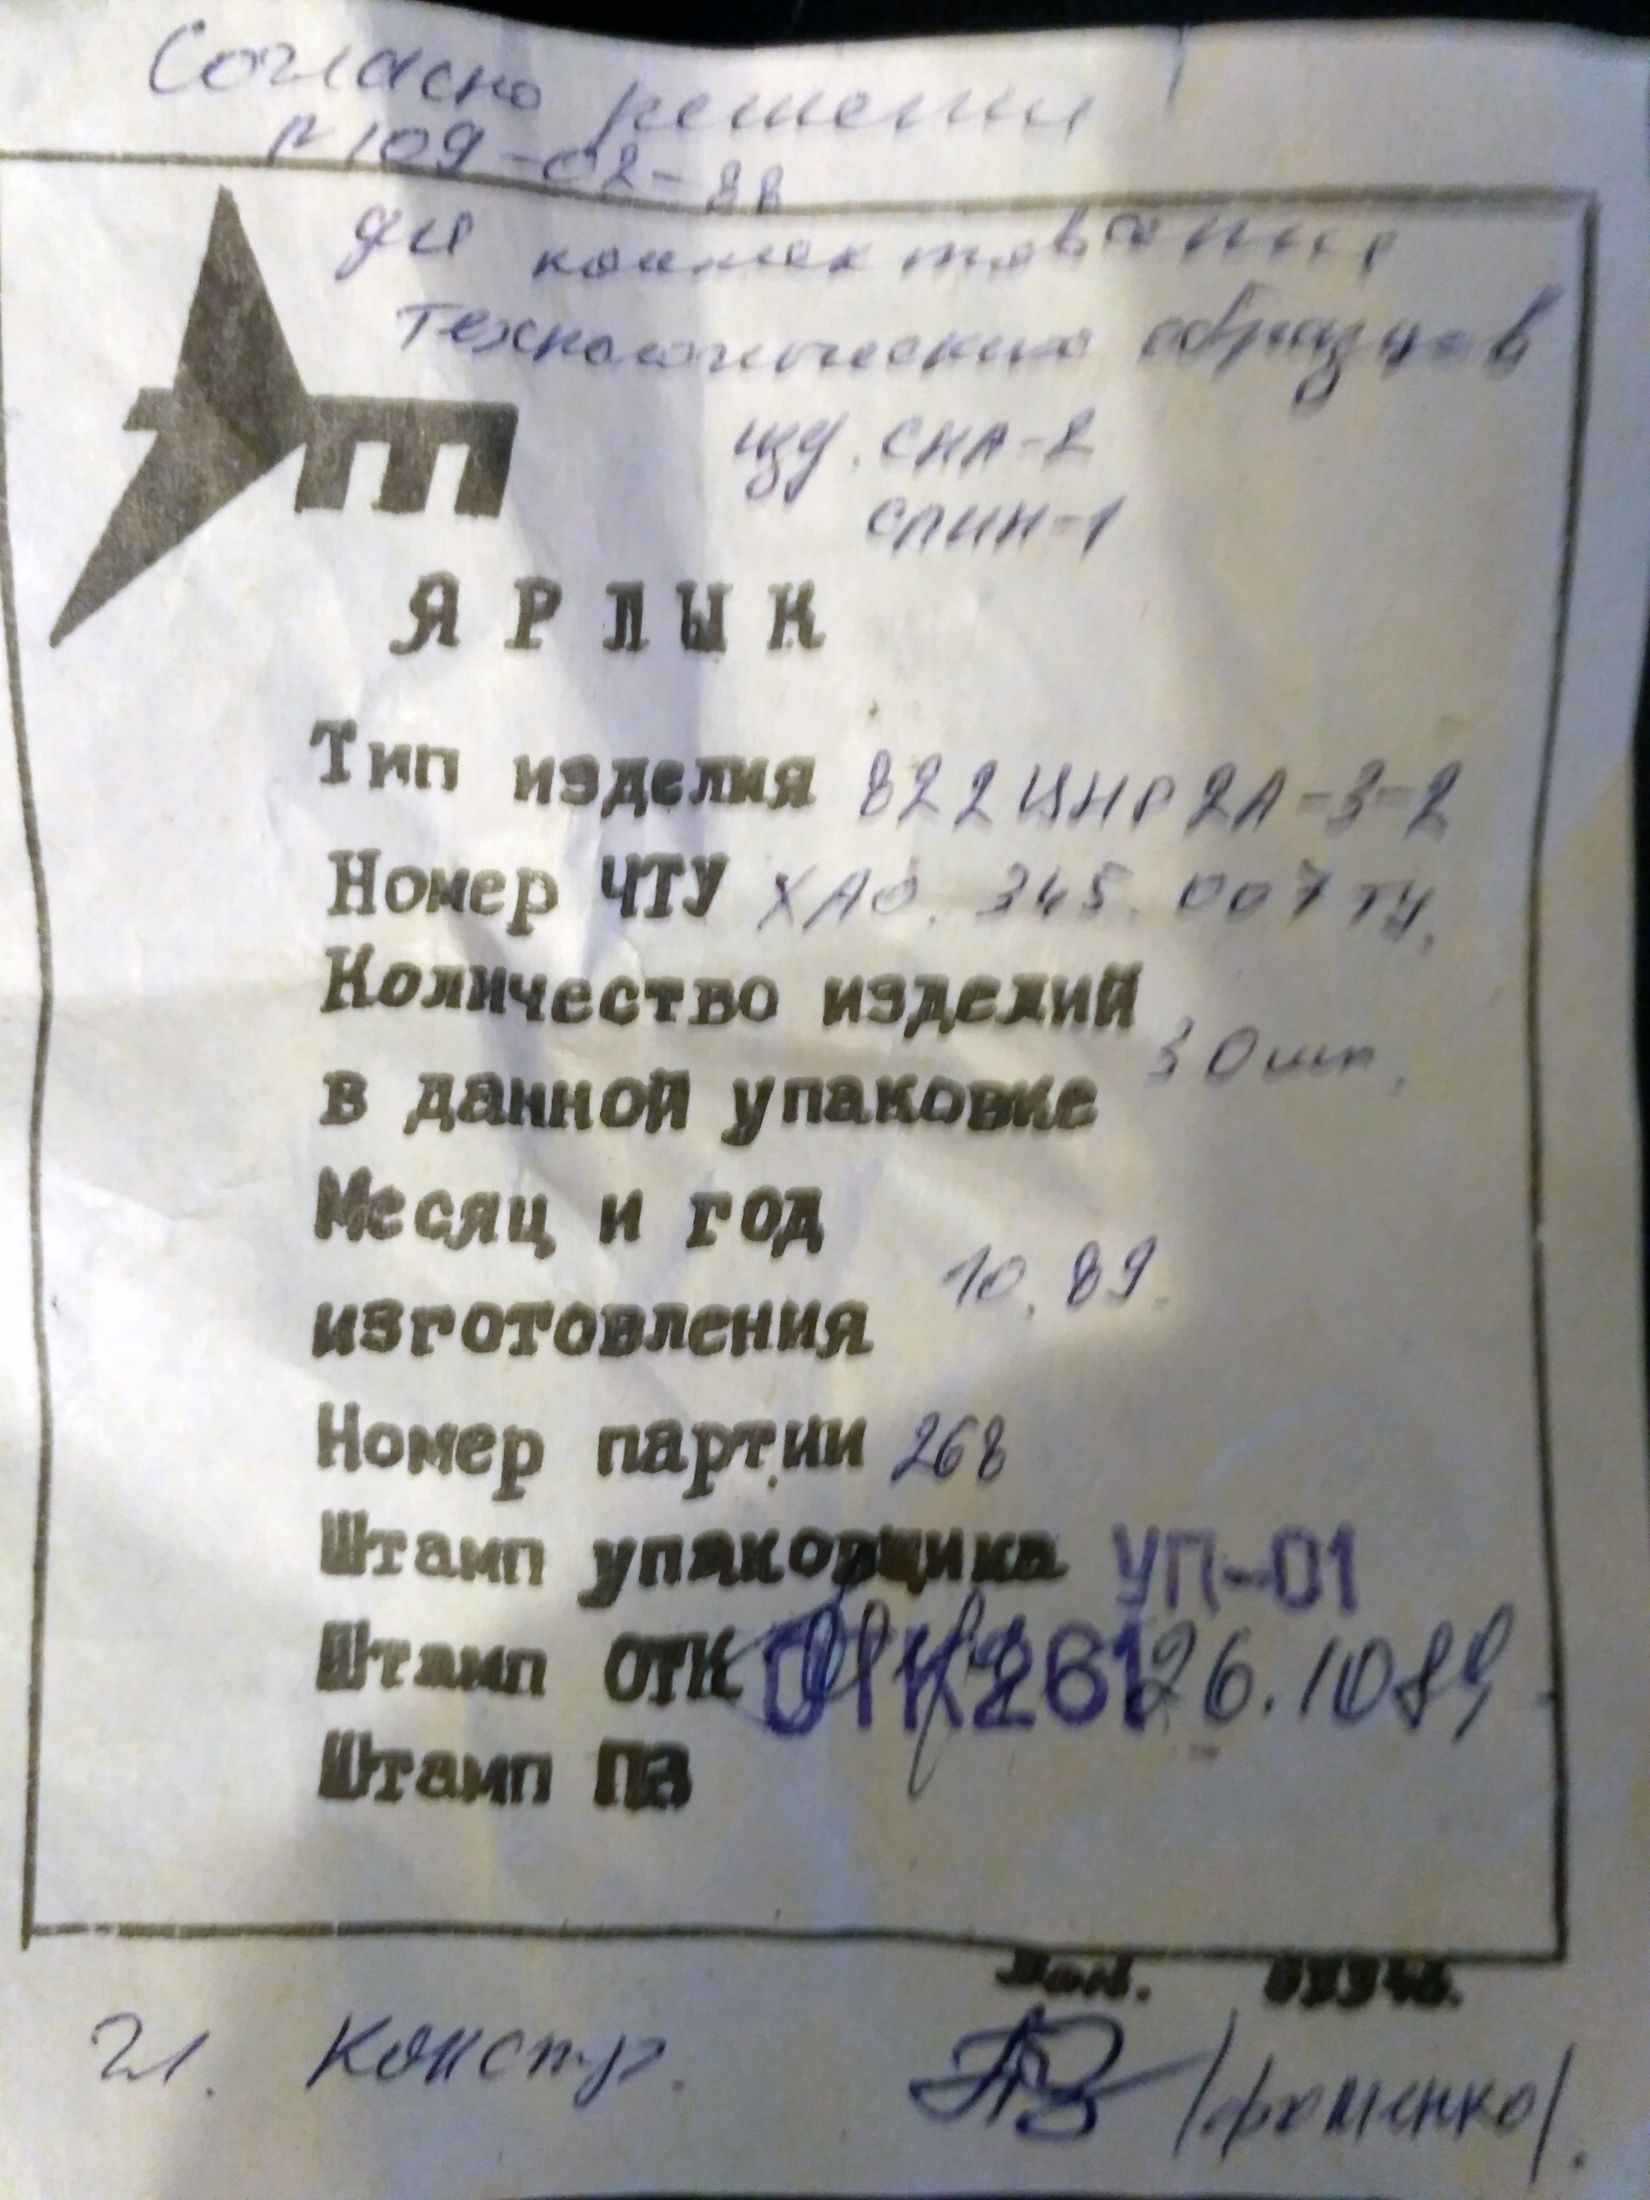 Согласно решения
№109-02-88
для комплектования
технологических образцов
шу. СНА-2
СПИН-1
ЯРЛЫК
Тип изделия 822ЦНР2А-3-2
Номер ЧТУ ХА0.345.007ТУ.
Количество изделий
в данной упаковке 30шт.
Месяц и год
изготовления 10.89.
Номер партии 268
Штамп упаковщика УП-01
Штамп ОТК ОТК261 26.1089
Штамп ПЗ
Гл. констр. /Фоменко/.